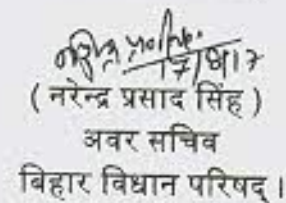 17/8/17
( नरेन्द्र प्रसाद सिंह )
अवर सचिव
बिहार विधान परिषद् ।